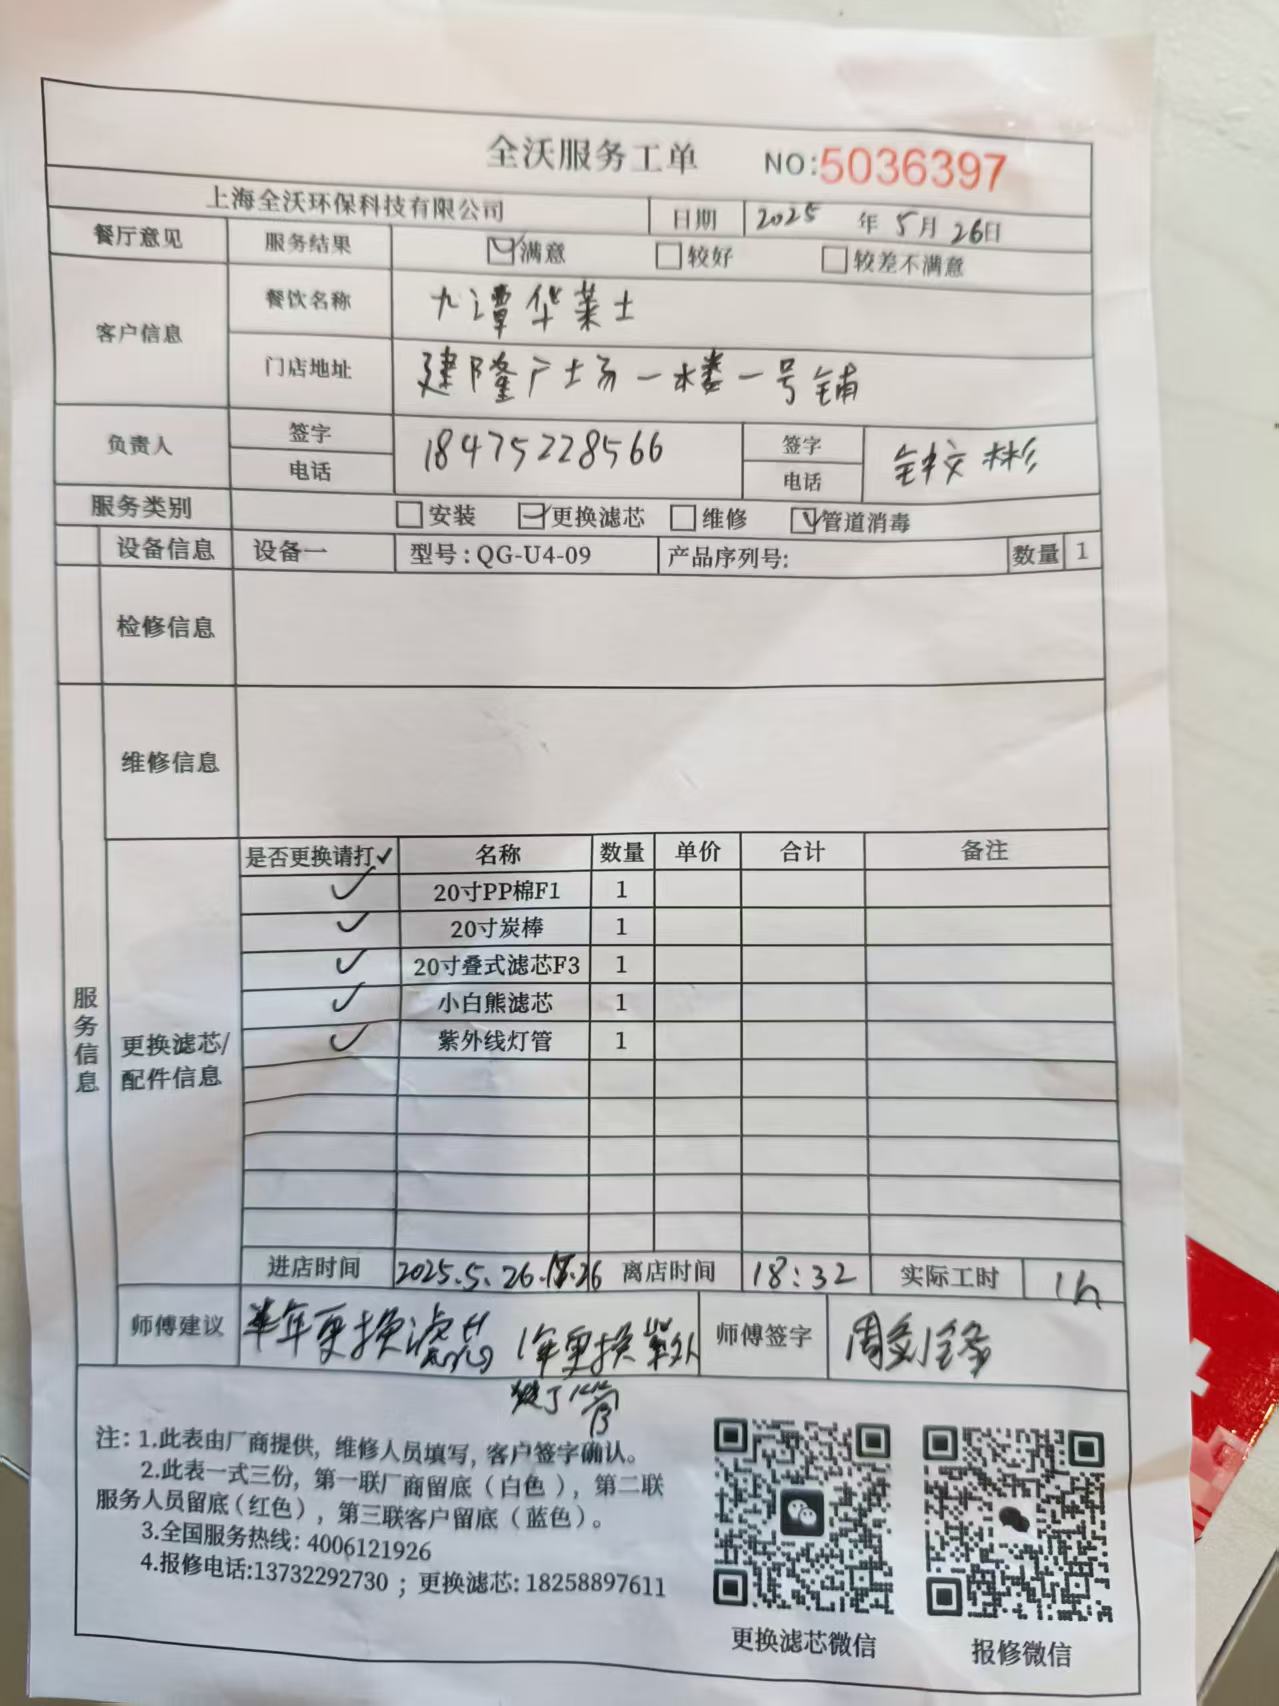 全沃服务工单 NO:5036397
上海全沃环保科技有限公司 日期 2025 年 5月 26日
餐厅意见 服务结果 满意 较好 较差不满意
客户信息 餐饮名称 九潭华莱士
门店地址 建隆广场一楼一号铺
负责人 签字 电话 18475228566 签字 电话
服务类别 安装 更换滤芯 维修 管道消毒
设备信息 设备一 型号:QG-U4-09 产品序列号: 数量 1
检修信息
维修信息
服务信息
更换滤芯/配件信息
是否更换请打✓ 名称 数量 单价 合计 备注
✓ 20寸PP棉F1 1
✓ 20寸炭棒 1
✓ 20寸叠式滤芯F3 1
✓ 小白熊滤芯 1
✓ 紫外线灯管 1
进店时间 2025.5.26. 离店时间 18:32 实际工时 1h
师傅建议 半年更换滤芯 1年更换紫外 师傅签字
线灯管
注: 1.此表由厂商提供, 维修人员填写, 客户签字确认。
2.此表一式三份, 第一联厂商留底(白色), 第二联
服务人员留底(红色), 第三联客户留底(蓝色)。
3.全国服务热线: 4006121926
4.报修电话:13732292730 ; 更换滤芯: 18258897611
更换滤芯微信 报修微信